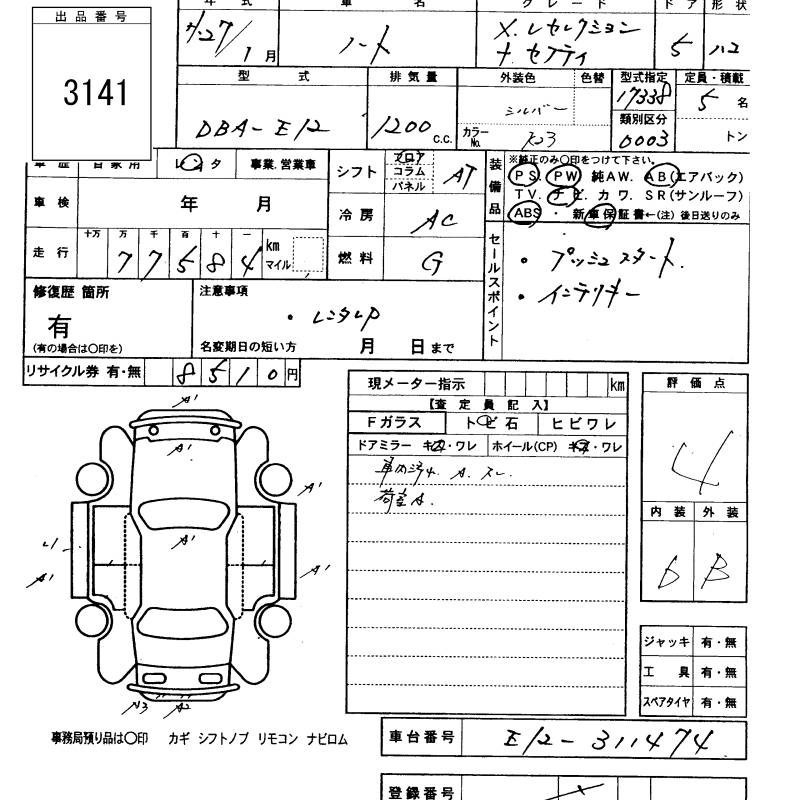 年 式 車 名 グ レ ー ド ド ア 形 状
出 品 番 号
3141
H27 / 1 月 ノート X.Vセレクション
+セフティ 5 ハコ
型 式 排 気 量 外装色 色替 型式指定 定員・積載
DBA-E12 1200 c.c. シルバー 17338 5 名
カラーNo. K23 類別区分 0003 トン
車 歴 自 家 用 レンタ 事業、営業車
シフト フロア コラム パネル AT
装備品 ※純正のみ〇印をつけて下さい。
PS. PW 純AW. AB(エアバック)
TV. ナビ. カワ. SR(サンルーフ)
ABS ・ 新車保証書←(注)後日送りのみ
車 検 年 月
冷 房 AC
走 行 十万 万 千 百 十 一 km マイル
7 7 5 8 4
燃 料 G
セールスポイント
・プッシュスタート.
・インテリキー
修復歴 箇所
有
(有の場合は〇印を)
注意事項
・レンタUP
名変期日の短い方 月 日まで
リサイクル券 有・無 8 5 1 0 円
現メーター指示 km
【査 定 員 記 入】
Fガラス トビ石 ヒビワレ
ドアミラー キズ・ワレ ホイール(CP) キズ・ワレ
車内汚れ A. スレ
荷室A.
評 価 点
4
内 装 外 装
B
A'
A'
A'
A'
A'
A'
A2
ジャッキ 有・無
工 具 有・無
スペアタイヤ 有・無
事務局預り品は〇印 カギ シフトノブ リモコン ナビロム
車台番号 E12-311474
登録番号